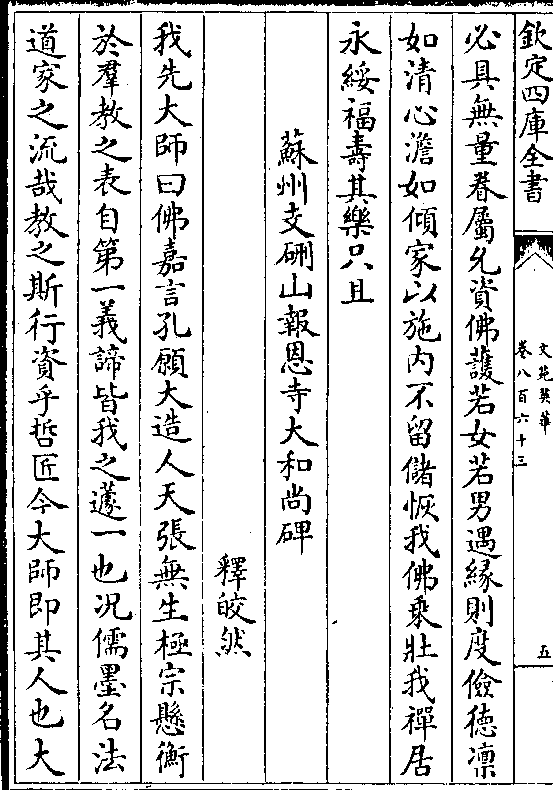 欽定四庫全書
文苑英華
卷八百六十三
五
必具無量眷屬允資佛護若女若男遇緣則度儉德凛
如清心澹如傾家以施内不留儲恢我佛乘壯我禪居
永綏福壽其樂只且
蘇州支硎山報恩寺大和尚碑
釋皎然
我先大師曰佛嘉言孔願大造人天張無生極宗懸衡
於羣教之表自第一義諦皆我之蘧一也况儒墨名法
道家之流哉教之斯行資乎哲匠今大師即其人也大